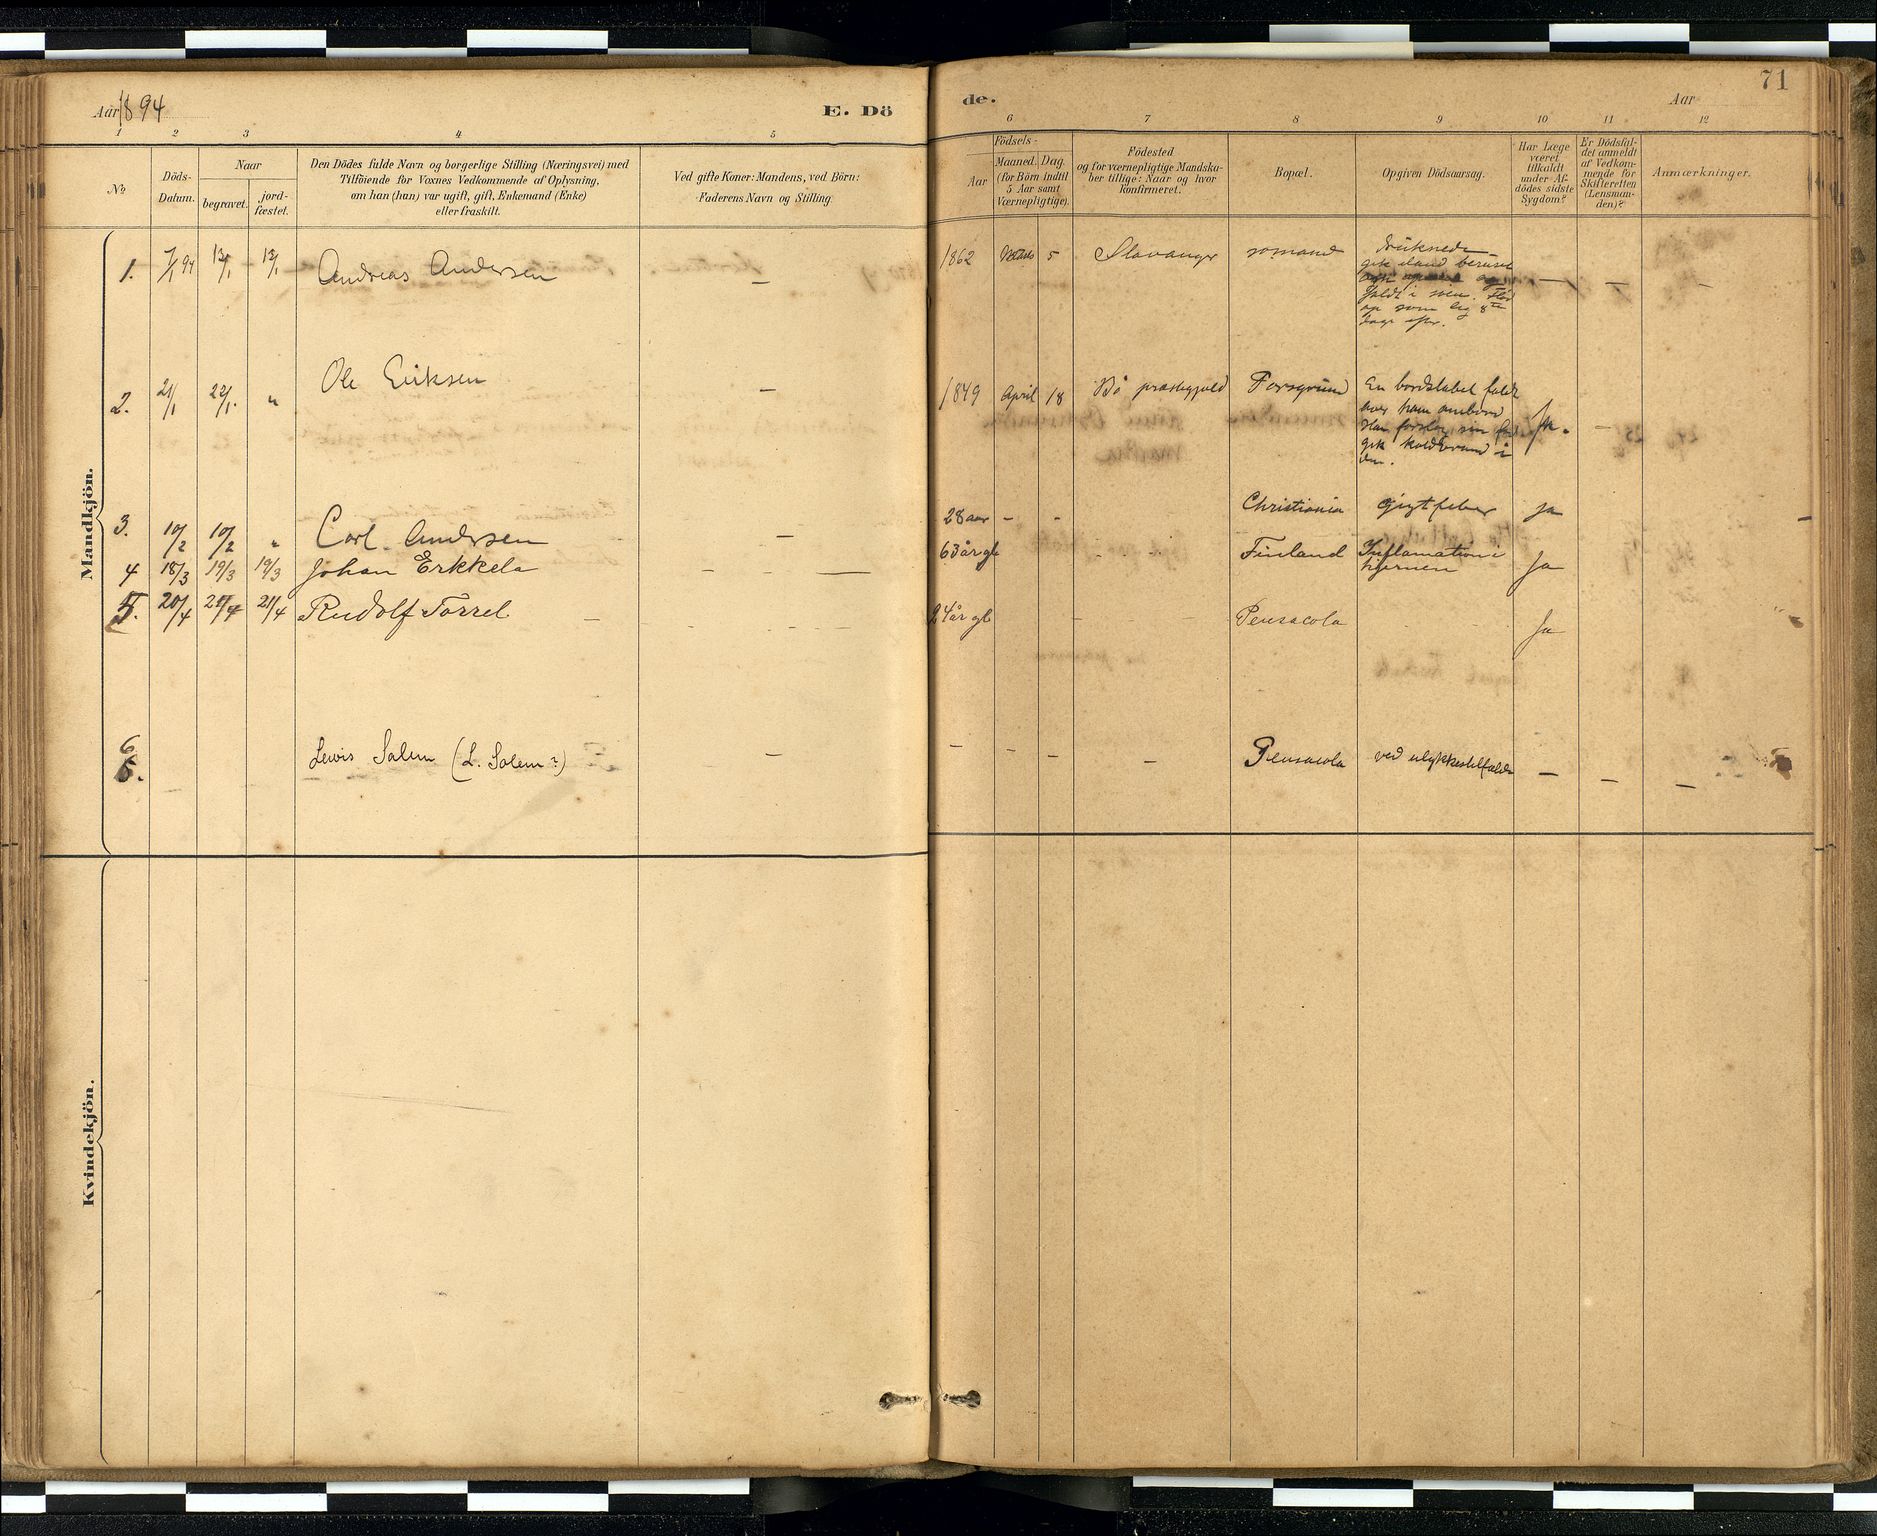 Aar 1894
E. Dö
de.
Aar
71
1 2 3 4 5 6 7 8 9 10 11 12
No
Döds-
Datum.
Naar
begravet.
jord-
fæstet.
Den Dödes fulde Navn og borgerlige Stilling (Næringsvei) med
Tilföiende for Voxnes Vedkommende af Oplysning,
om han (hun) var ugift, gift, Enkemand (Enke)
eller fraskilt.
Ved gifte Koner: Mandens, ved Börn:
Faderens Navn og Stilling
Födsels-
Aar
Maaned.
Dag.
(for Börn indtil
5 Aar samt
Værnepligtige).
Födested
og for værnepligtige Mandska-
ber tillige: Naar og hvor
konfirmeret.
Bopæl.
Opgiven Dödsaarsag.
Har Læge
været
tilkaldt
under Af-
dödes sidste
Sygdom?
Er Dödsfal-
det anmeldt
af Vedkom-
mende for
Skifteretten
(Lensman-
den)?
Anmærkninger.
Mandkjön.
1. 7/1 94 13/1 13/1 Andreas Andersen — 1862 5 Stavanger sömand druknede
gik iland beruset
faldt i söen. Flöd
op som lig 8te
dage efter.
— — -
2. 21/1 22/1. " Ole Eriksen — 1849 April 18 Bö præstegjeld Porsgrund En bordstabel faldt
over ham ombord
Han forslog sin fod
gik koldbrand i
den.
Ja. —
3. 10/2 10/2 " Carl. Andersen — 28 aar - - Christiania Gigtfeber ja
4 18/3 19/3 19/3 Johan Erkkela - — 63 år gl - - Finland Inflamation i
hjernen
Ja
5. 20/4 21/4 21/4 Rudolf Torrel — - - 24 år gl - - Pensacola - - Ja
6. Lewis Salem (L. Solem?) — — - - — Pensacola ved ulykkestilfælde — — —
Kvindekjön.